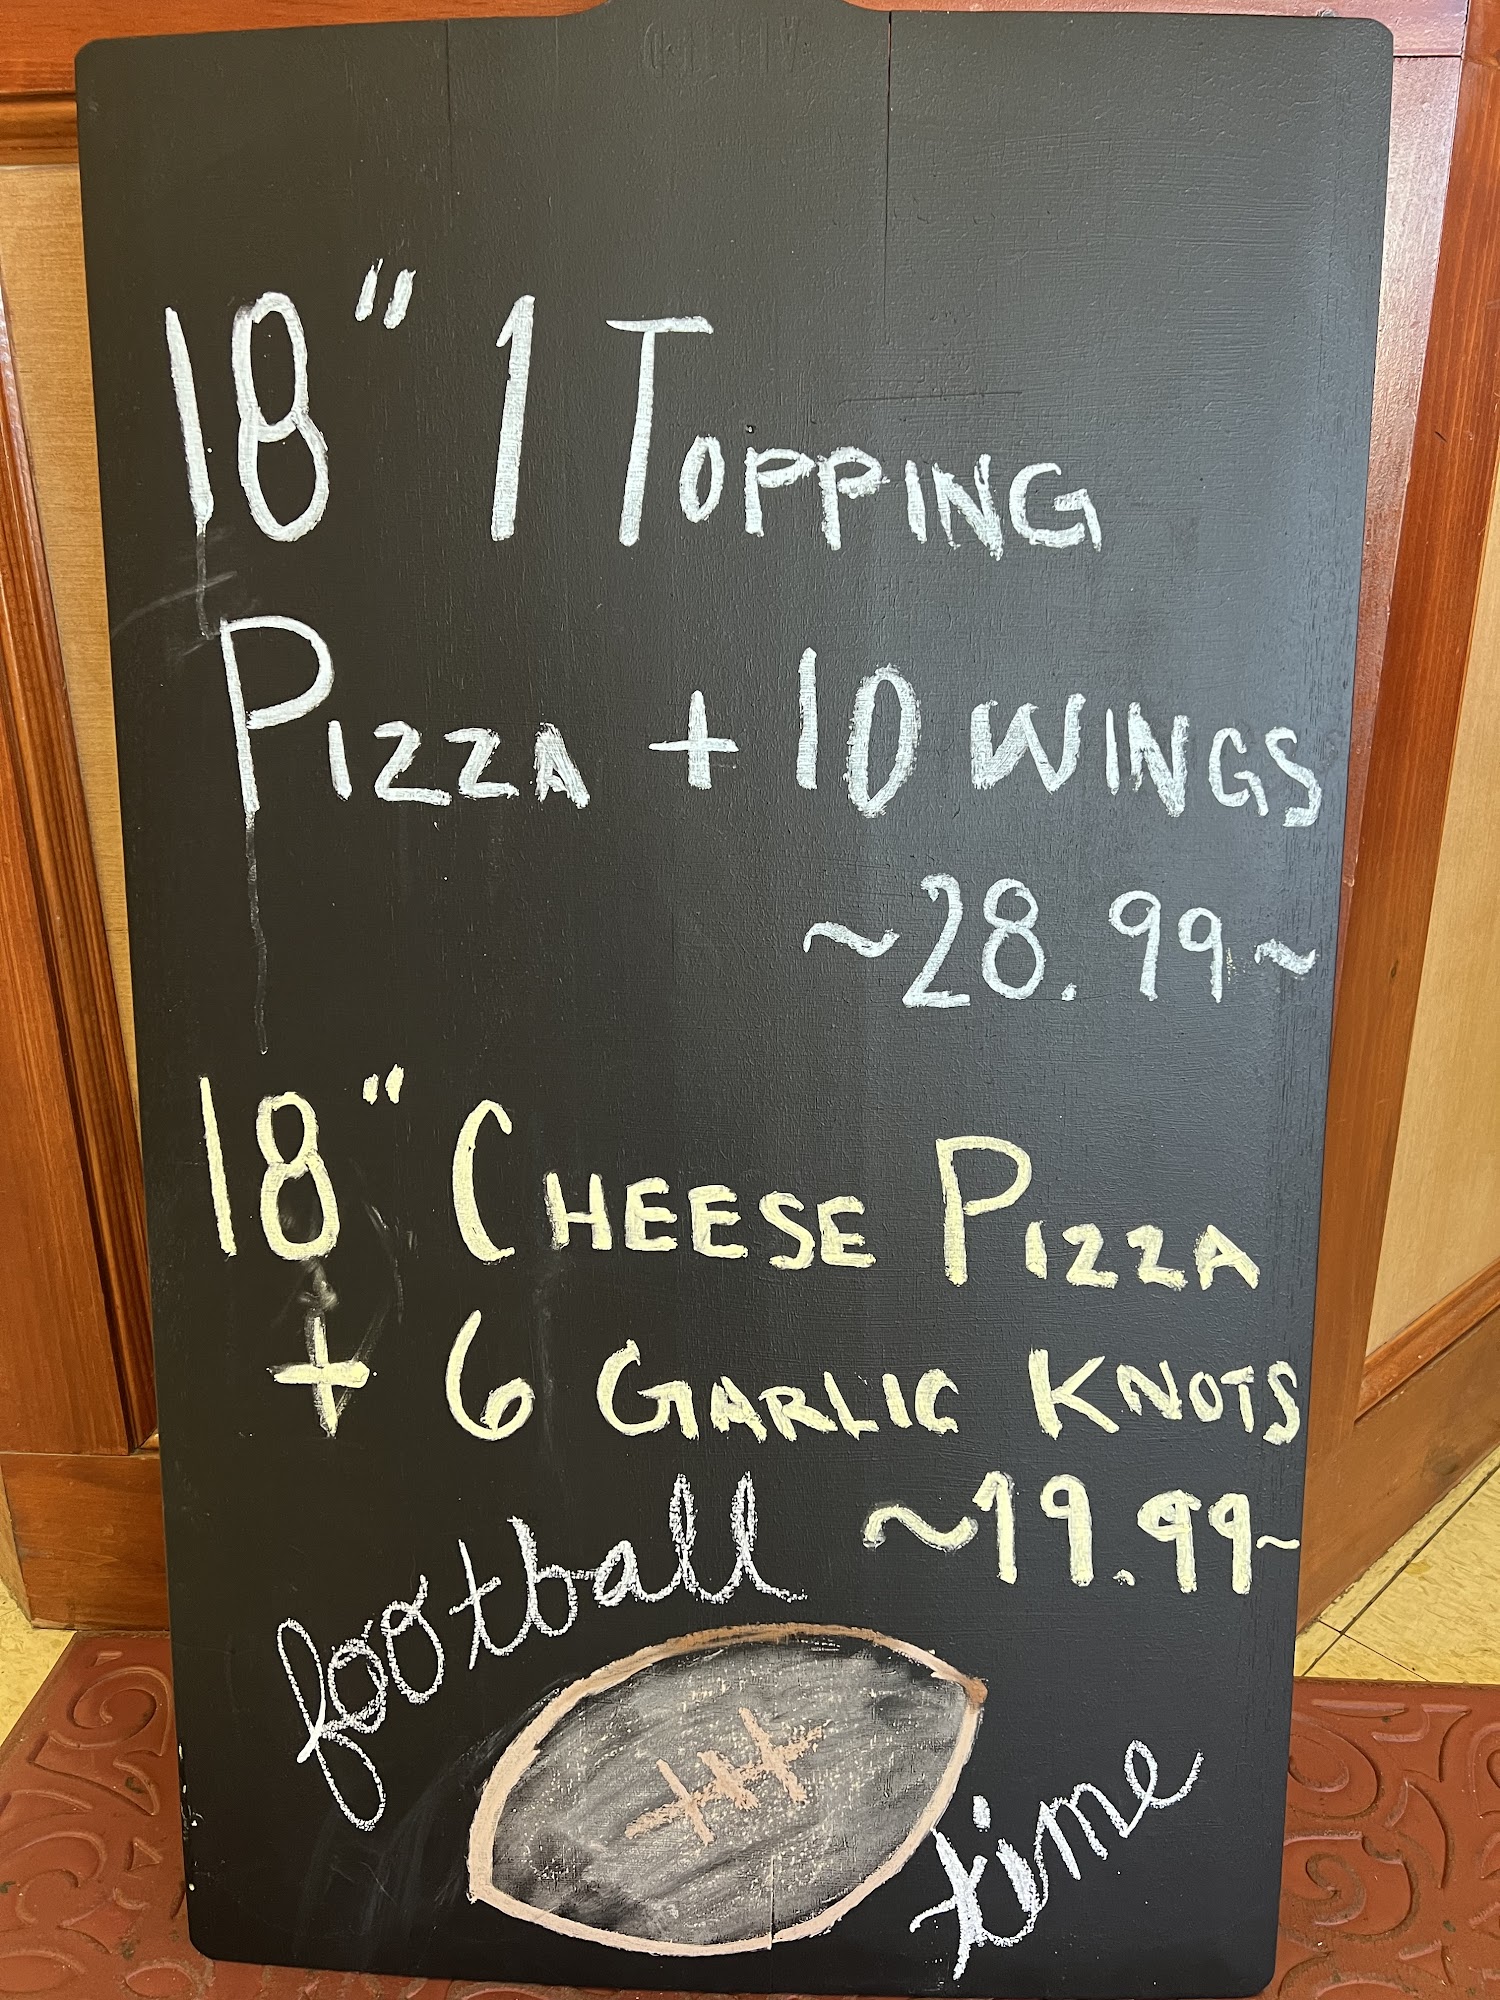 18" 1 TOPPING
PIZZA + 10 WINGS
~28.99~
18" CHEESE PIZZA
+ 6 GARLIC KNOTS
~19.99~
football
time